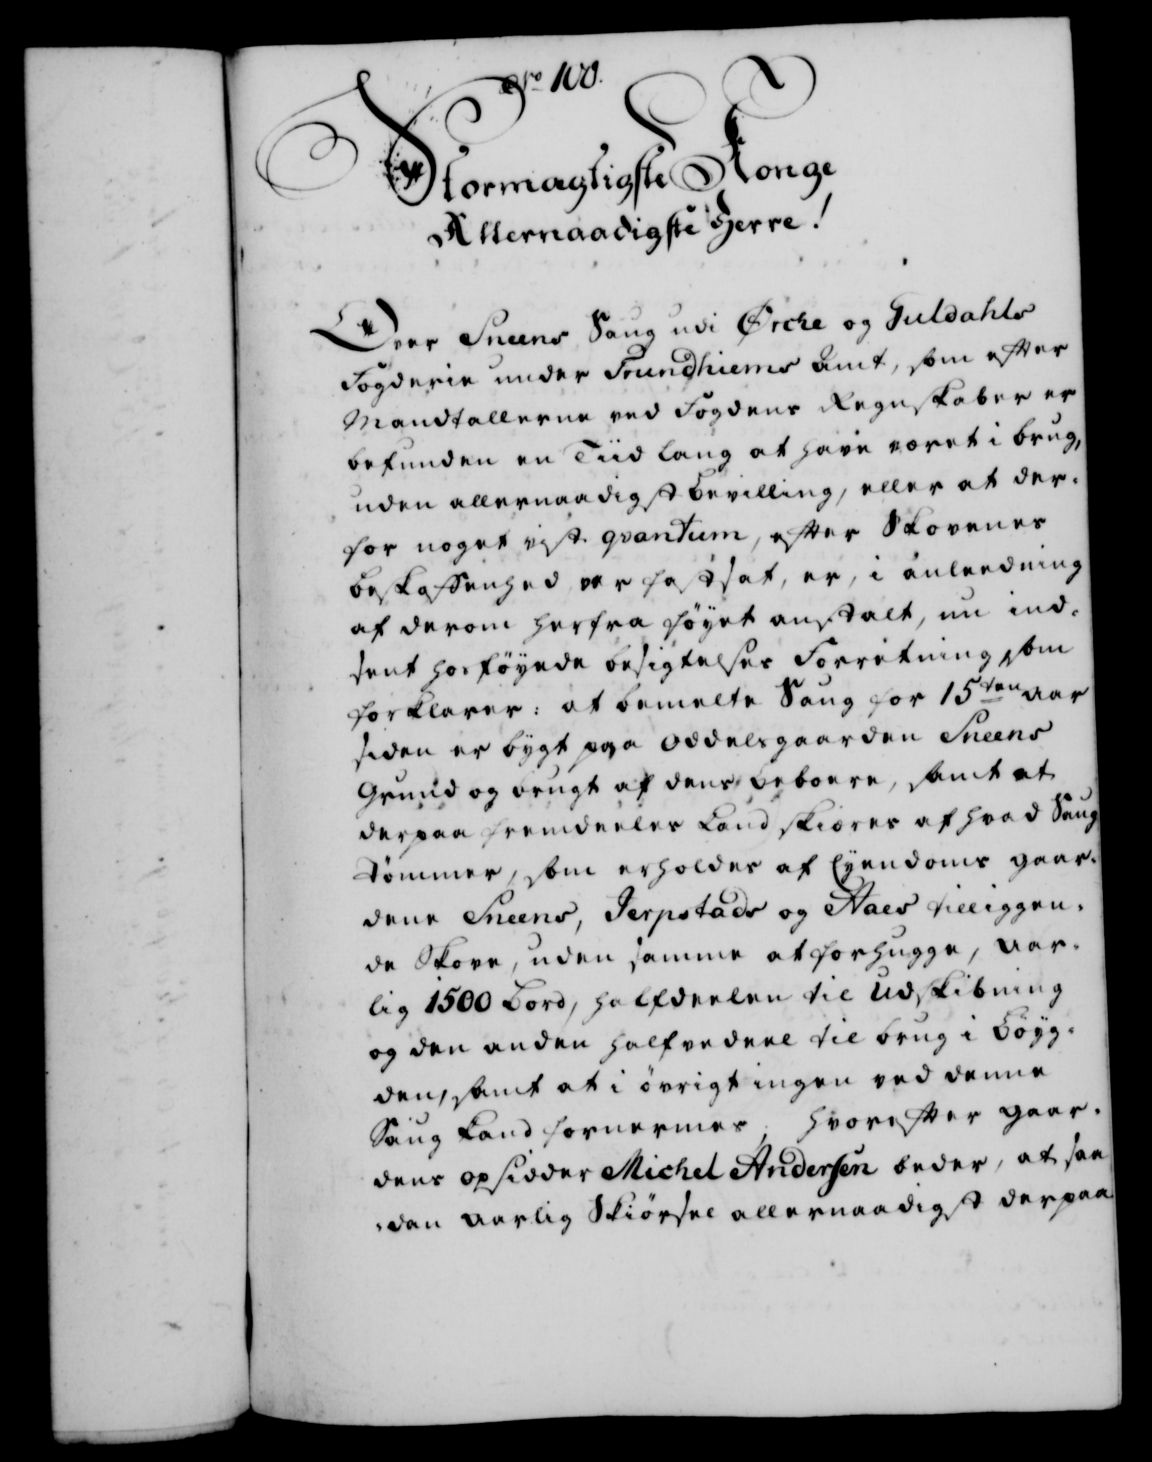 No 100.
Stormægtigste Konge
Allernaadigste Herre!
Over Sneens Saug udi Ørche og Guldahls
Fogderie under Trundhiems Amt, som efter
Mandtallerne ved Fogdens Regnskaber er
befunden en Tiid lang at have været i brug,
uden allernaadigst bevilling, eller at der-
for noget vist qvantum, efter Skovenes
beskaffenhed var fastsat, er, i anleedning
af derom herfra føyet anstalt, nu ind-
sent hosføyede besigtelses Forretning, som
forklarer: at bemelte Saug for 15ten aar
siden er bygt paa Oddelsgaarden Sneens
Grund og brugt af dens beboere, samt at
derpaa fremdeeles kand skiæres af hvad Saug
Tømmer, som erholdes af Eyendoms gaar-
dene Sneens, Jerpstads og Aaes tilliggen-
de Skove, uden samme at forhugge, aar-
lig 1500 Bord, halfdeelen til Udskibning
og den anden halfvedeel til brug i Bøyg-
den, samt at i øvrigt ingen ved denne
Saug kand fornærmes. Hvorefter gaar-
dens opsidder Michel Andersen beder, at saa-
dan aarlig Skiørsel allernaadigst derpaa